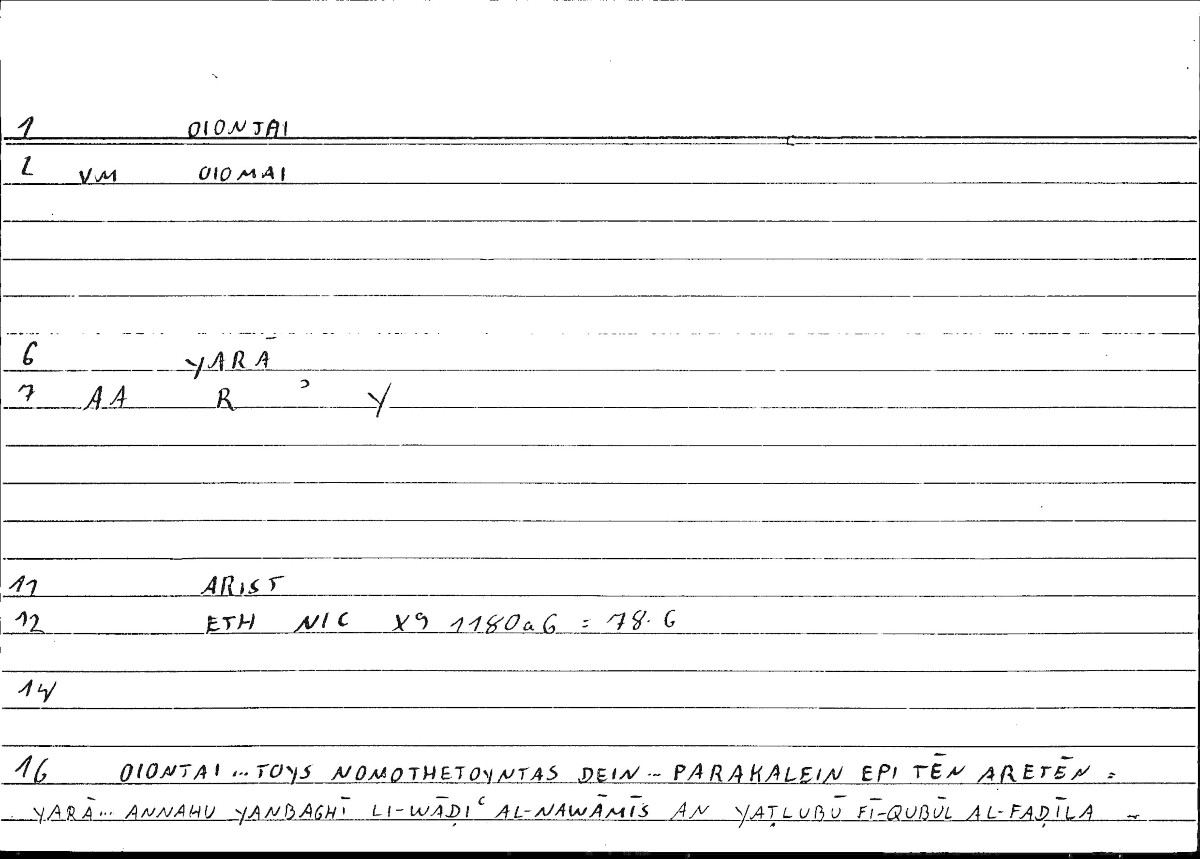 1 OIONTAI
2 VM OIOMAI
6 YARĀ
7 AA R ʾ Y
11 ARIST
12 ETH NIC X9 1180a6 = 78.6
14
16 OIONTAI ... TOYS NOMOTHETOYNTAS DEIN ... PARAKALEIN EPI TĒN ARETĒN =
YARĀ ... ANNAHU YANBAGHĪ LI-WĀḌIʿ AL-NAWĀMĪS AN YAṬLUBŪ FĪ-QUBŪL AL-FAḌĪLA